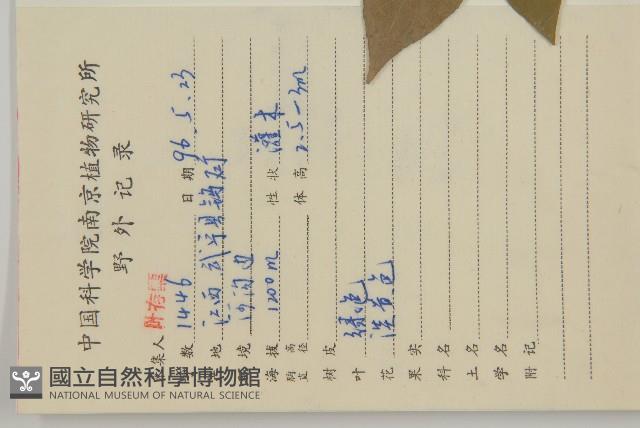 中国科学院南京植物研究所
野外记录
采集人 叶存粟
号数 1446 日期 96.5.23
产地 江西武宁县钩刀
环境 沙沟边
海拔 1200m 性状 灌木
胸高直径 体高 2.5-3m
树皮
叶 绿色
花 淡黄色
果实
科名
土名
学名
附记
國立自然科學博物館
NATIONAL MUSEUM OF NATURAL SCIENCE